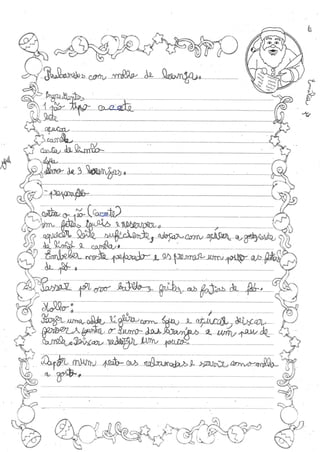 Rabanadas com molho de laranja.
Ingredientes
1 pão tipo cacete
leite
açúcar
canela
casca de limão
água
sumo de 3 laranjas.
preparação
corta o pão (cacete)
em fatias iguais e reservar.
aquecer leite suficiente, adoçar com açúcar, a gosto casca
de limão e canela.
Embeber neste preparado e espremer um pouco as fatias
de pão.
Passar por ovo batido e fritar as fatias de pão.
Molho:
Fazer uma calda ligeira com água e açúcar, deixar
ferver e juntar o sumo das laranjas e um pau de
canela. deixar reduzir um pouco.
num prato as rabanadas e servir com o molho
a gosto.